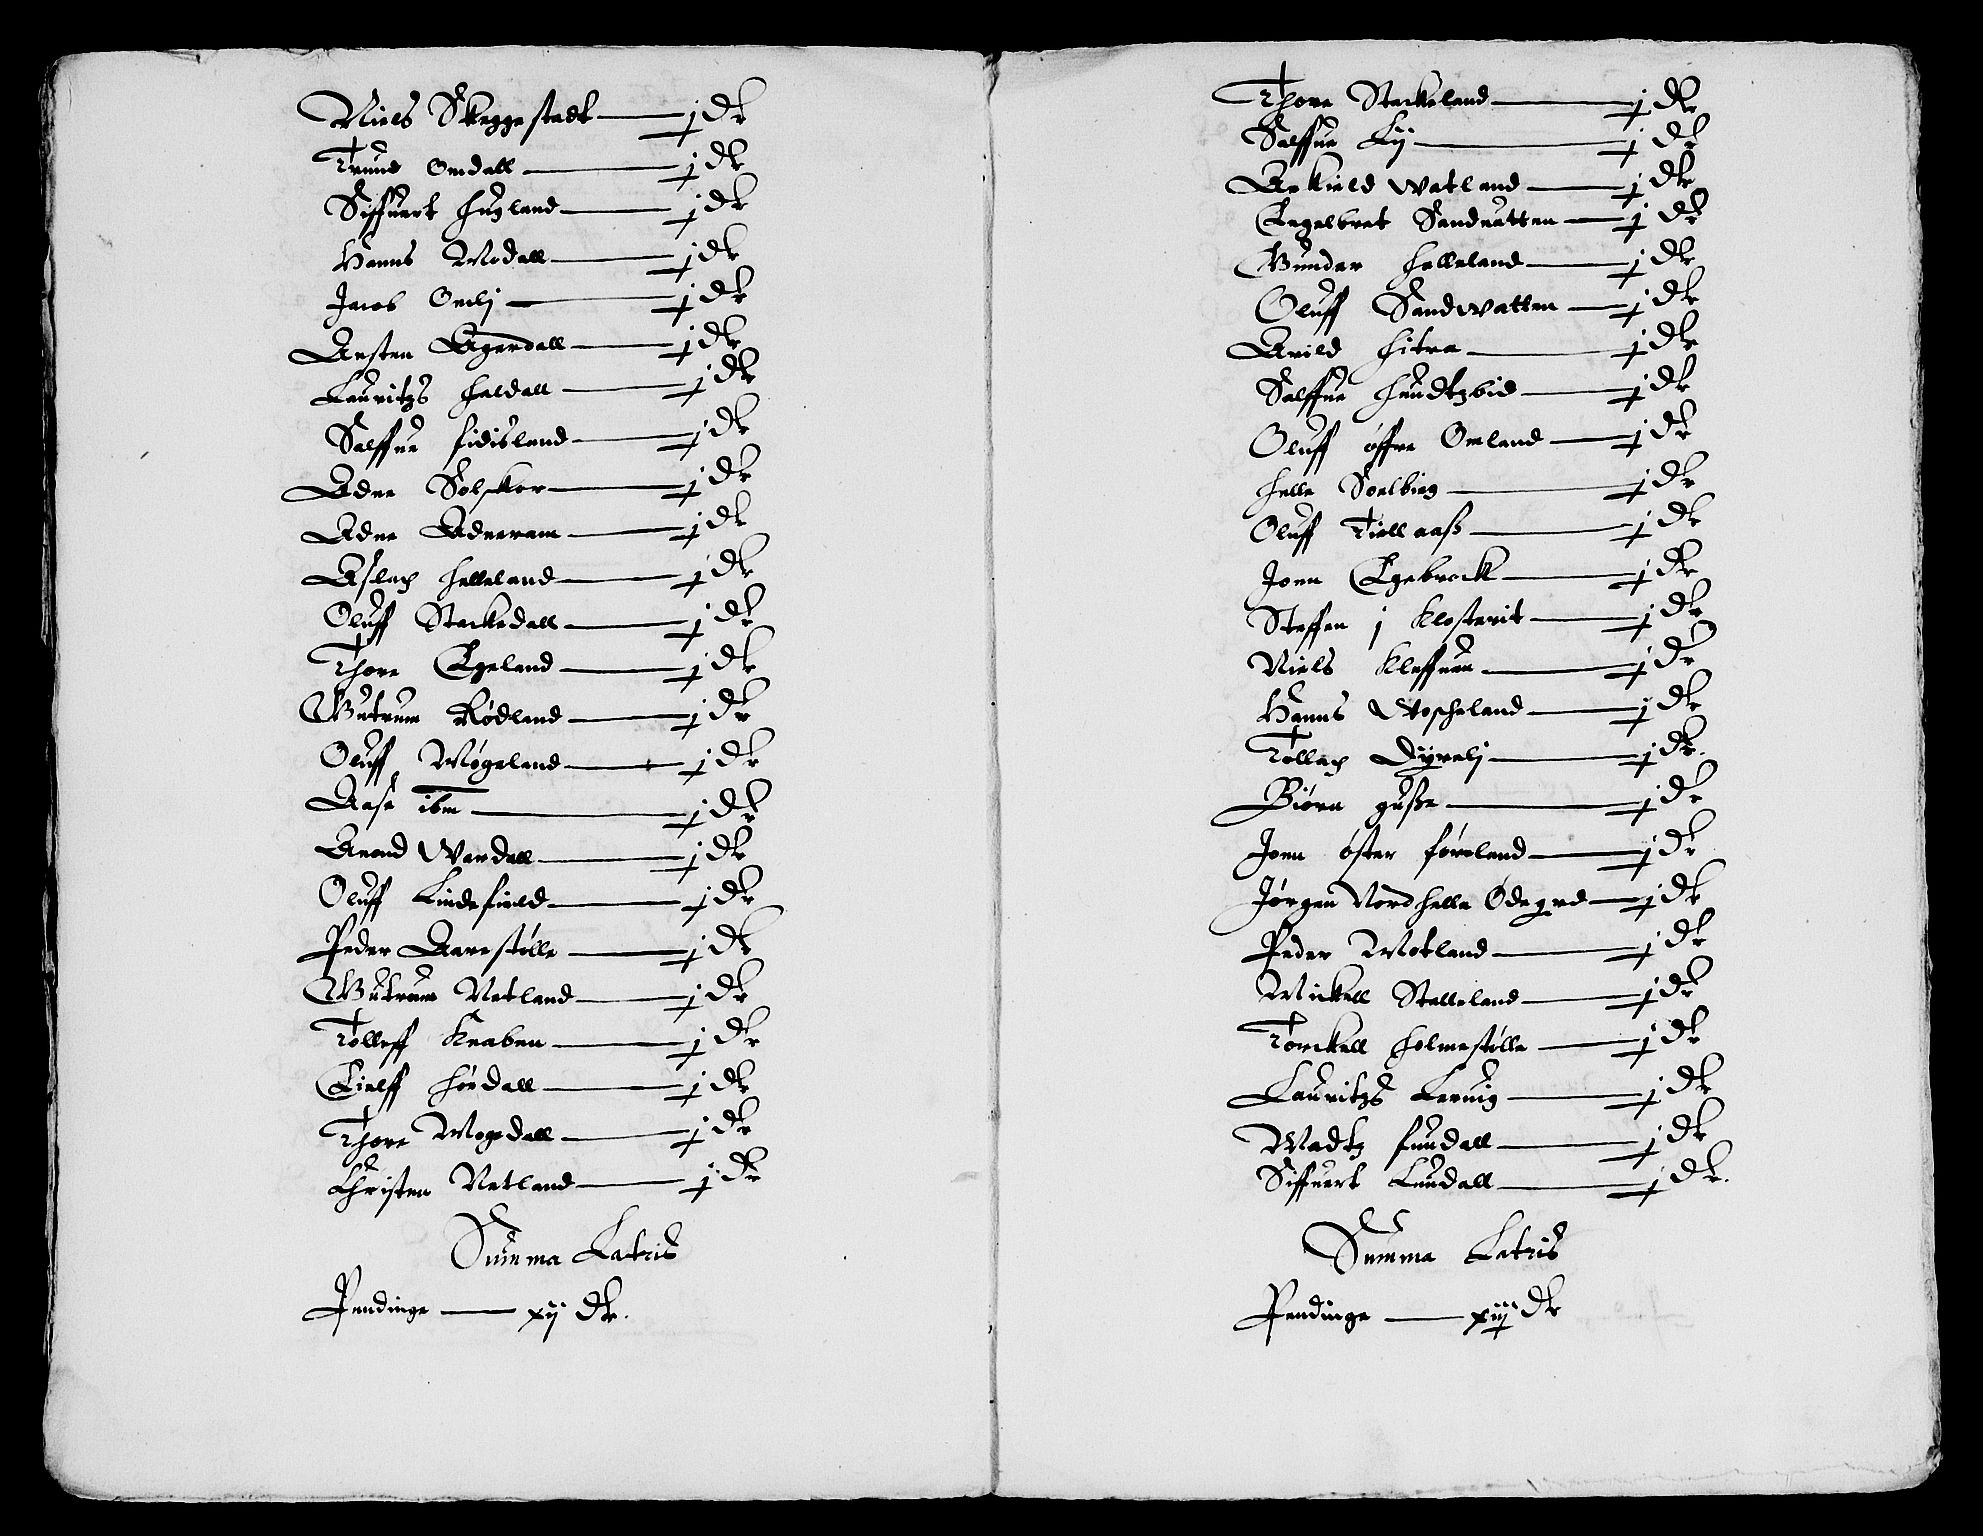 Niels Skeggestadt — j dr
Trund Omdall — j dr
Siffuert Hugland — j dr
Hanns Modall — j dr
Jacob Omlj — j dr
Aresten Egerdall — j dr
Lauritzs Haldall — j dr
Salffue Fidisland — j dr
Adne Solsker — j dr
Adne Adneram — j dr
Aslach Helleland — j dr
Oluff Stackedall — j dr
Thore Egeland — j dr
Gutrum Rødland — j dr
Oluff Møgeland — j dr
Aase ibm — j dr
Anond Wardall — j dr
Oluff Lindefield — j dr
Peder Aarestølle — j dr
Gutrum Netland — j dr
Tolleff Knaben — j dr
Eielff Hørdall — j dr
Thore Mogedall — j dr
Christen Netland — j dr
Summa Latris
Pendinge — xij dr.
Thore Stackeland — j dr
Salffue Lij — j dr
Askield Watland — j dr
Engelbret Sanduatten — j dr
Gunder Helleland — j dr
Oluff Sandwatten — j dr
Arild Hitra — j dr
Salffue Hundtzbid — j dr
Oluff øffre Omland — j dr
Helle Soelbierg — j dr
Oluff Tiellaaß — j dr
Joen Egebrock — j dr
Steffen j Klosterit — j dr
Niels Kleffuen — j dr
Hanns Woscheland — j dr
Tollach Dyrelj — j dr.
Biørn guße — j dr
Joen øster Førland — j dr
Jørgen Nordhelle Ødegrd — j dr
Peder Motland — j dr
Mickell Stalleland — j dr
Torckell Holmestølle — j dr
Lauritzs Leruig — j dr
Madtz Fundall — j dr
Siffuert Lundall — j dr.
Summa Latris
Pendinge — xiij dr